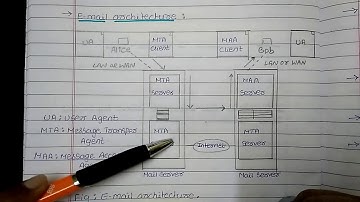 E-mail architecture :
UA
Alice
MTA
Client
MAA
Client
Bob
UA
LAN or WAN
LAN or WAN
MTA
Server
MAA
Server
UA : User Agent
MTA : Message Transfer
Agent
MAA : Message
MTA
Internet
MTA
Server
Mail Server
Mail Server
Fig : E-mail architecture.